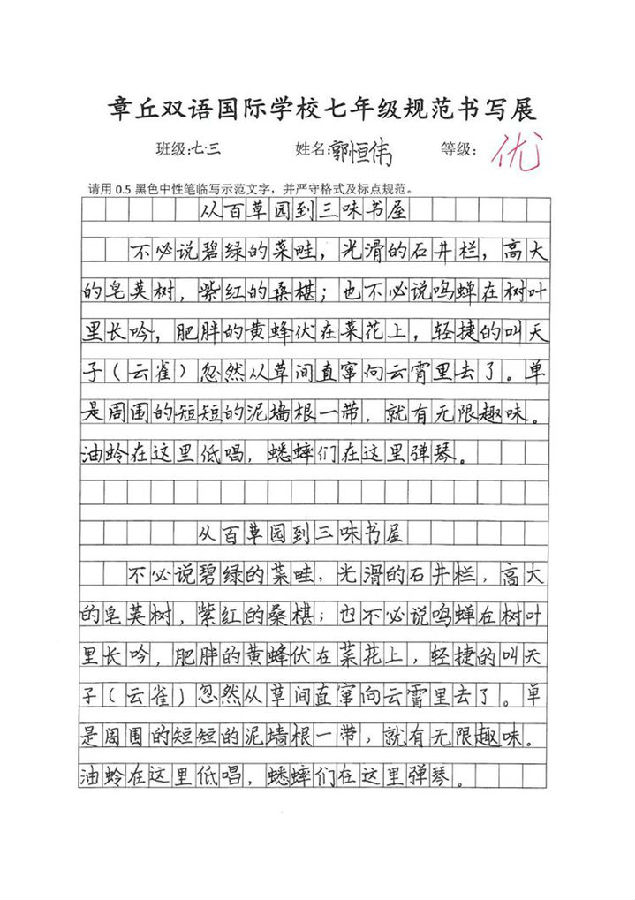 章丘双语国际学校七年级规范书写展
班级:七.三 姓名:郭恒伟 等级: 优
请用 0.5 黑色中性笔临写示范文字，并严守格式及标点规范。
从百草园到三味书屋
不必说碧绿的菜畦，光滑的石井栏，高大
的皂荚树，紫红的桑椹；也不必说鸣蝉在树叶
里长吟，肥胖的黄蜂伏在菜花上，轻捷的叫天
子（云雀）忽然从草间直窜向云霄里去了。单
是周围的短短的泥墙根一带，就有无限趣味。
油蛉在这里低唱，蟋蟀们在这里弹琴。
从百草园到三味书屋
不必说碧绿的菜畦，光滑的石井栏，高大
的皂荚树，紫红的桑椹；也不必说鸣蝉在树叶
里长吟，肥胖的黄蜂伏在菜花上，轻捷的叫天
子（云雀）忽然从草间直窜向云霄里去了。单
是周围的短短的泥墙根一带，就有无限趣味。
油蛉在这里低唱，蟋蟀们在这里弹琴。